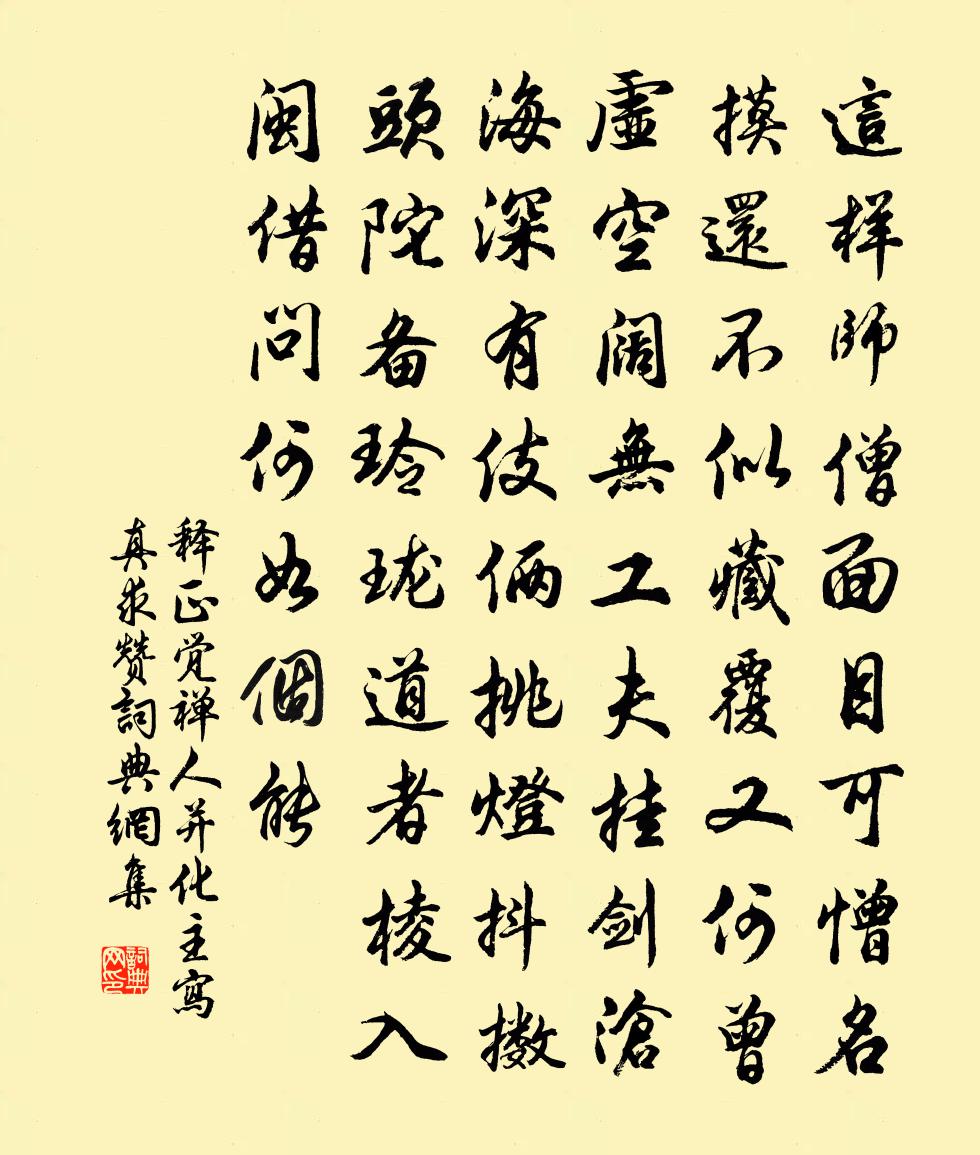 這样師僧面目可憎名
摸還不似藏覆又何曾
虛空阔無工夫挂剑滄
海深有伎俩挑燈抖擞
頭陀备玲珑道者棱入
闽借问何如個能
释正觉禅人并化主寫
真求赞詞典網集
詞典
网印